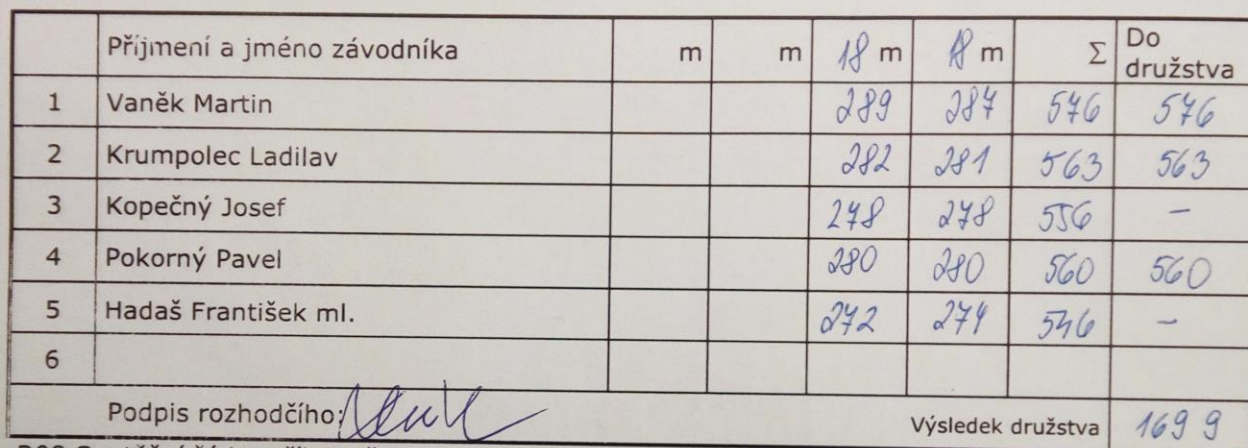 Příjmení a jméno závodníka m m 18 m 18 m Σ Do družstva
1 Vaněk Martin 289 287 576 576
2 Krumpolec Ladilav 282 281 563 563
3 Kopečný Josef 278 278 556 –
4 Pokorný Pavel 280 280 560 560
5 Hadaš František ml. 272 274 546 –
6
Podpis rozhodčího: Výsledek družstva 1699